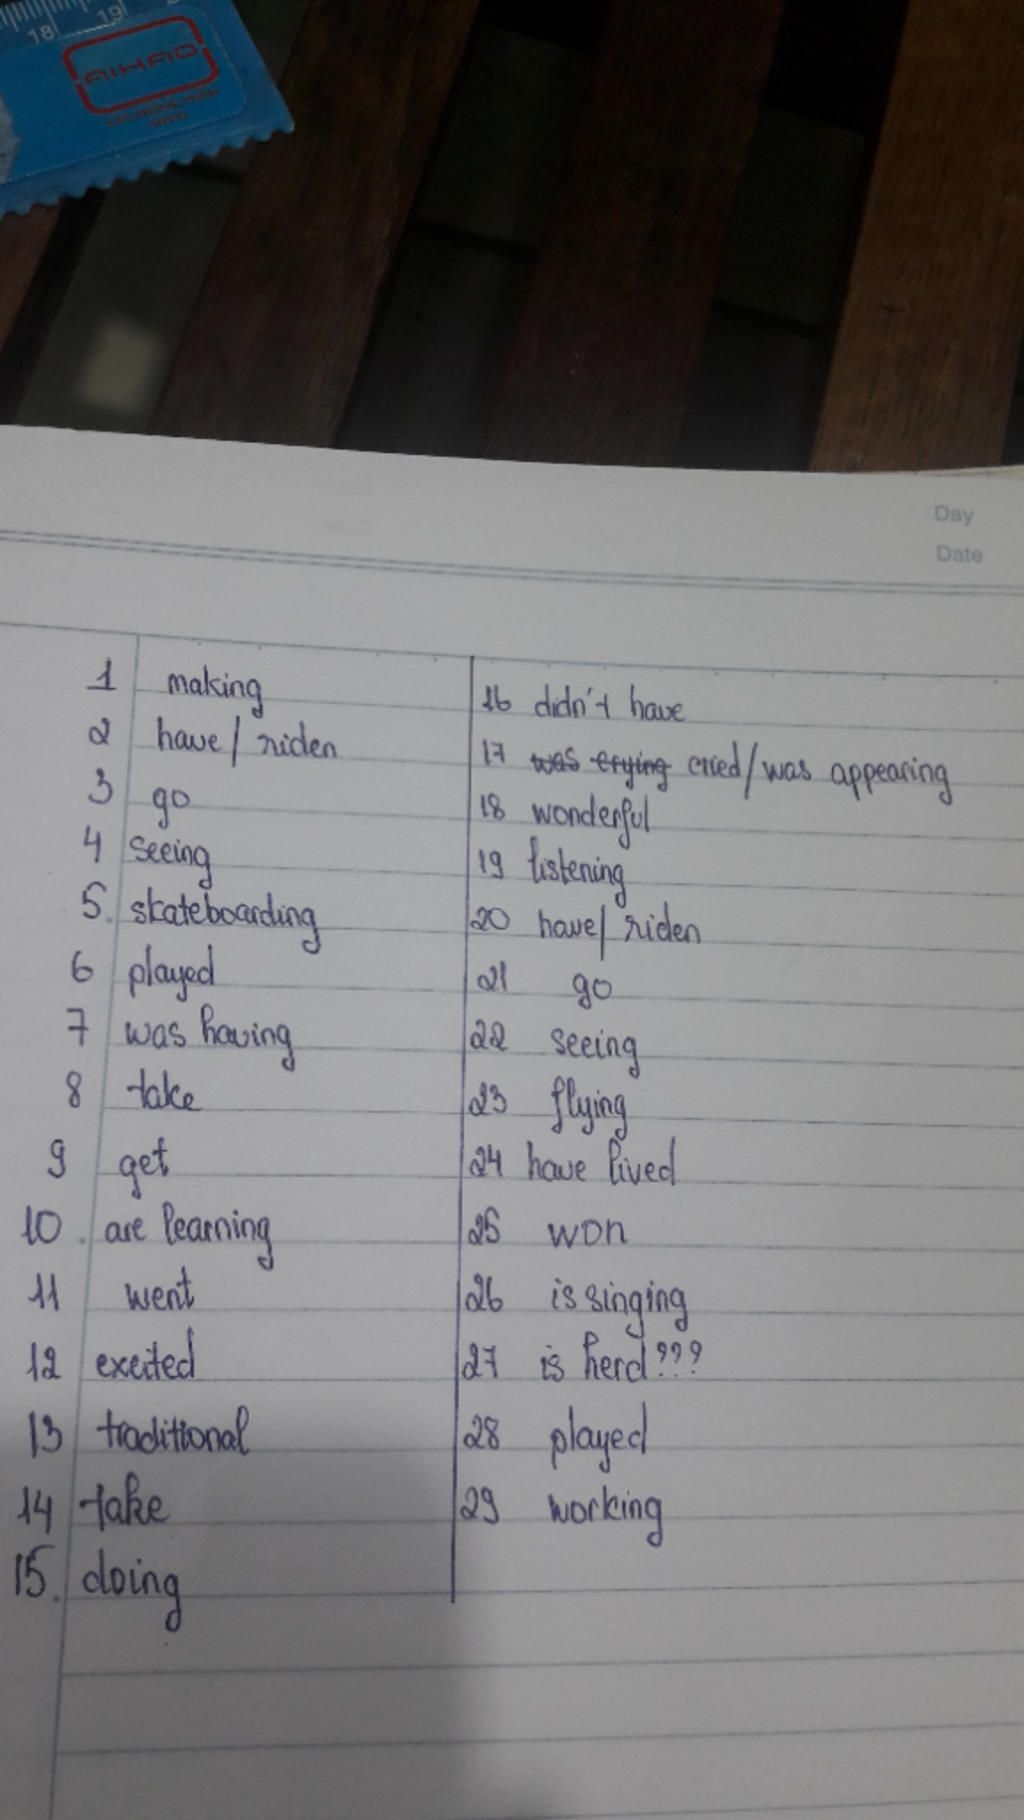 18 19
AIHAO
Day
Date
1 making
2 have / riden
3 go
4 seeing
5. skateboarding
6 played
7 was having
8 take
9 get
10. are learning
11 went
12 excited
13 traditional
14 take
15. doing
16 didn't have
17 was crying cried/was appearing
18 wonderful
19 listening
20 have/ riden
21 go
22 seeing
23 flying
24 have lived
25 won
26 is singing
27 is herd ???
28 played
29 working